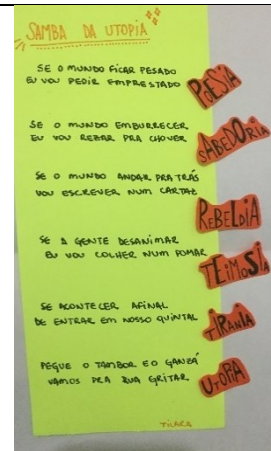 SAMBA DA UTOPIA
SE O MUNDO FICAR PESADO
EU VOU PEDIR EMPRESTADO
POESIA
SE O MUNDO EMBURRECER
EU VOU REZAR PRA CHOVER
SABEDORIA
SE O MUNDO ANDAR PRA TRÁS
VOU ESCREVER NUM CARTAZ
REBELDIA
SE A GENTE DESANIMAR
EU VOU COLHER NUM POMAR
TEIMOSIA
SE ACONTECER AFINAL
DE ENTRAR EM NOSSO QUINTAL
TIRANIA
PEGUE O TAMBOR E O GANZÁ
VAMOS PRA RUA GRITAR
UTOPIA